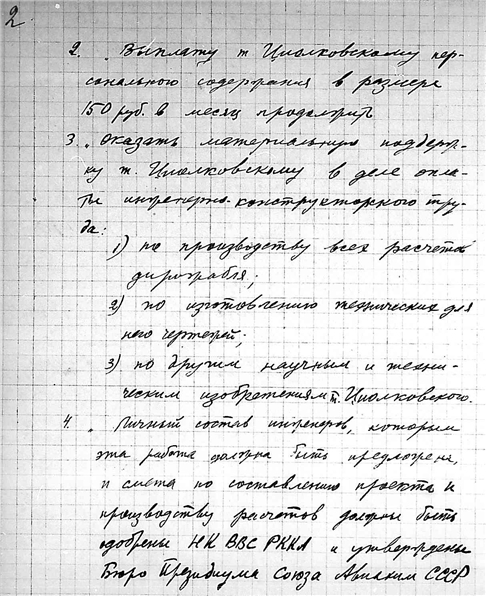 2
2. „ Выплату т. Циолковскому пер-
сонального содержания в размере
150 руб. в месяц продолжить
3. „ Оказать материальную поддерж-
ку т. Циолковскому в деле опла-
ты инженерно-конструкторского тру-
да:
1) по производству всех расчетов
дирижабля;
2) по изготовлению технических для
него чертежей;
3) по другим научным и техни-
ческим изобретениям т. Циолковского.
4. „ Личный состав инженеров, которым
эта работа должна быть предложена,
и смета по составлению проекта и
производству расчетов должны быть
одобрены НК ВВС РККА и утверждены
Бюро Президиума Союза Авиахим СССР